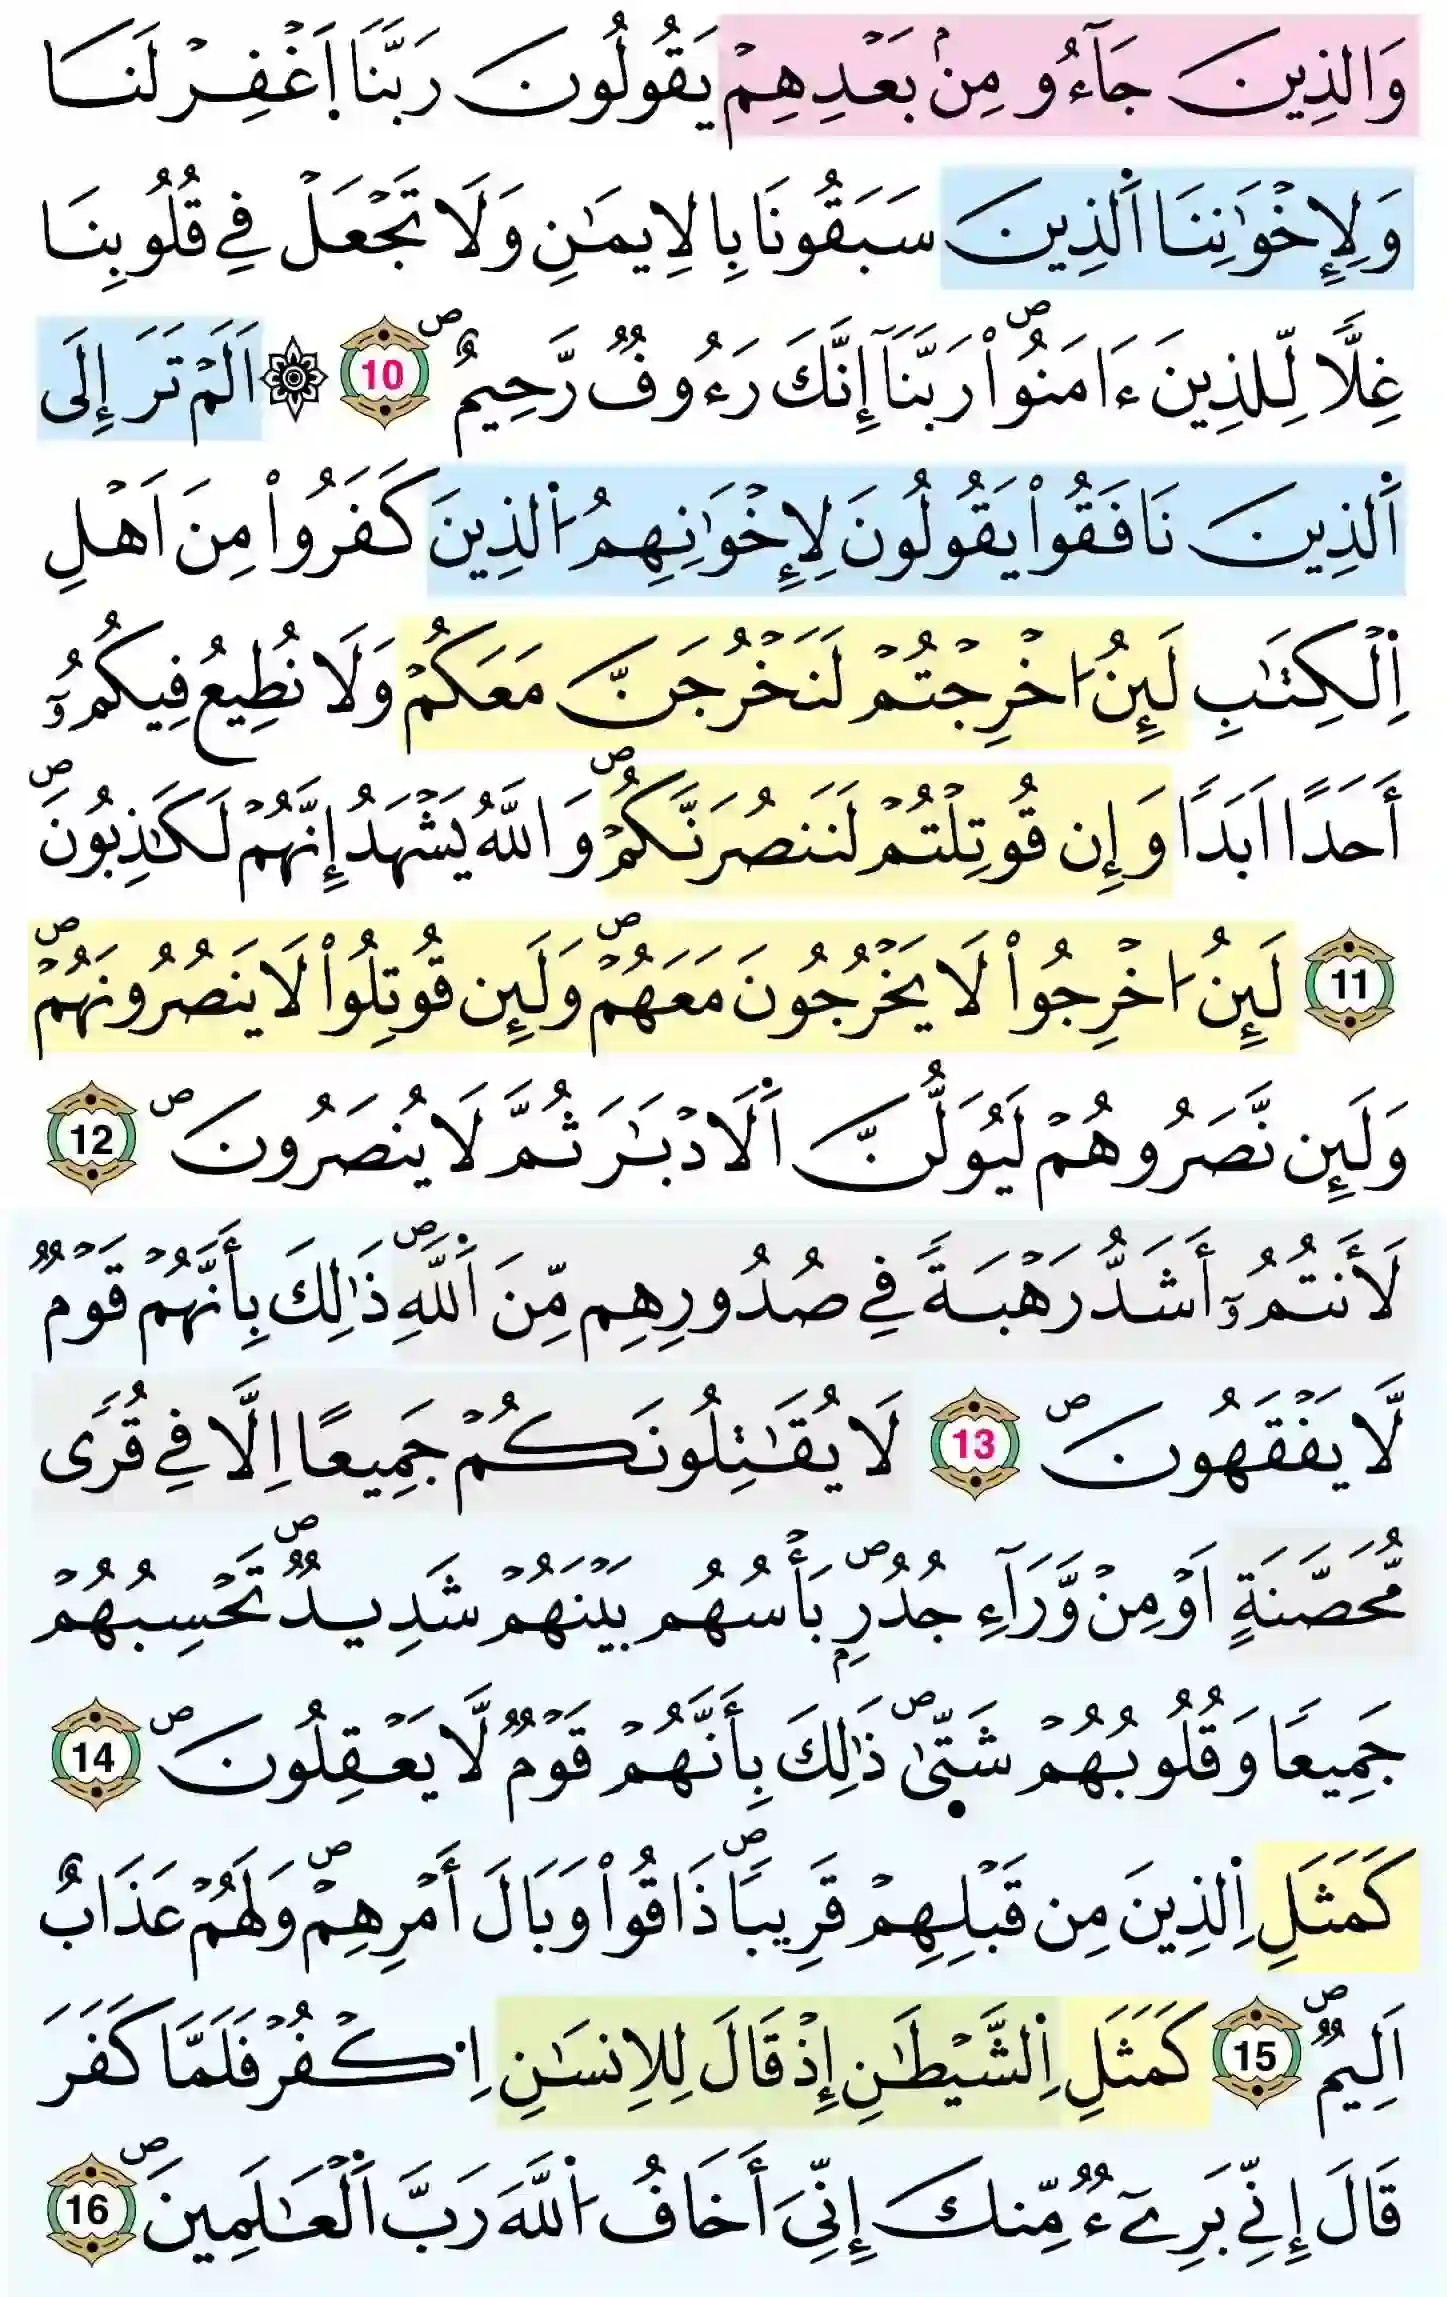 وَالذِينَ جَآءُو مِنۢ بَعْدِهِمْ يَقُولُونَ رَبَّنَا اَ۪غْفِرْ لَنَا
وَلِإِخْوَٰنِنَا اَ۬لذِينَ سَبَقُونَا بِالِايمَٰنِ وَلَا تَجْعَلْ فِے قُلُوبِنَا
غِلّاٗ لِّلذِينَ ءَامَنُواْۖ رَبَّنَآ إِنَّكَ رَءُوفٞ رَّحِيمٌۖ 10 ۞ اَلَمْ تَرَ إِلَى
اَ۬لذِينَ نَافَقُواْ يَقُولُونَ لِإِخْوَٰنِهِمُ اُ۬لذِينَ كَفَرُواْ مِنَ اَهْلِ
اِ۬لْكِتَٰبِ لَئِنُ ا۟خْرِجْتُمْ لَنَخْرُجَنَّ مَعَكُمْ وَلَا نُطِيعُ فِيكُمُۥٓ
أَحَداً اَبَداٗ وَإِن قُوتِلْتُمْ لَنَنصُرَنَّكُمْۖ وَاللَّهُ يَشْهَدُ إِنَّهُمْ لَكَٰذِبُونَۖ
11 لَئِنُ ا۟خْرِجُواْ لَا يَخْرُجُونَ مَعَهُمْۖ وَلَئِن قُوتِلُواْ لَا يَنصُرُونَهُمْۖ
وَلَئِن نَّصَرُوهُمْ لَيُوَلُّنَّ اَ۬لَادْبَٰرَ ثُمَّ لَا يُنصَرُونَۖ 12
لَأَنتُمُۥٓ أَشَدُّ رَهْبَةٗ فِے صُدُورِهِم مِّنَ اَ۬للَّهِۖ ذَٰلِكَ بِأَنَّهُمْ قَوْمٞ
لَّا يَفْقَهُونَۖ 13 لَا يُقَٰتِلُونَكُمْ جَمِيعاً اِلَّا فِے قُرٗى
مُّحَصَّنَةٍ اَوْ مِنْ وَّرَآءِ جُدُرِۢۖ بَأْسُهُم بَيْنَهُمْ شَدِيدٞۖ تَحْسِبُهُمْ
جَمِيعاٗ وَقُلُوبُهُمْ شَتّ۪ىٰۖ ذَٰلِكَ بِأَنَّهُمْ قَوْمٞ لَّا يَعْقِلُونَۖ 14
كَمَثَلِ اِ۬لذِينَ مِن قَبْلِهِمْ قَرِيباٗۖ ذَاقُواْ وَبَالَ أَمْرِهِمْۖ وَلَهُمْ عَذَابٌ
اَلِيمٞۖ 15 كَمَثَلِ اِ۬لشَّيْطَٰنِ إِذْ قَالَ لِلِانسَٰنِ اِ۟كْفُرْ فَلَمَّا كَفَرَ
قَالَ إِنِّے بَرِےٓءٞ مِّنكَ إِنِّيَ أَخَافُ اُ۬للَّهَ رَبَّ اَ۬لْعَٰلَمِينَۖ 16